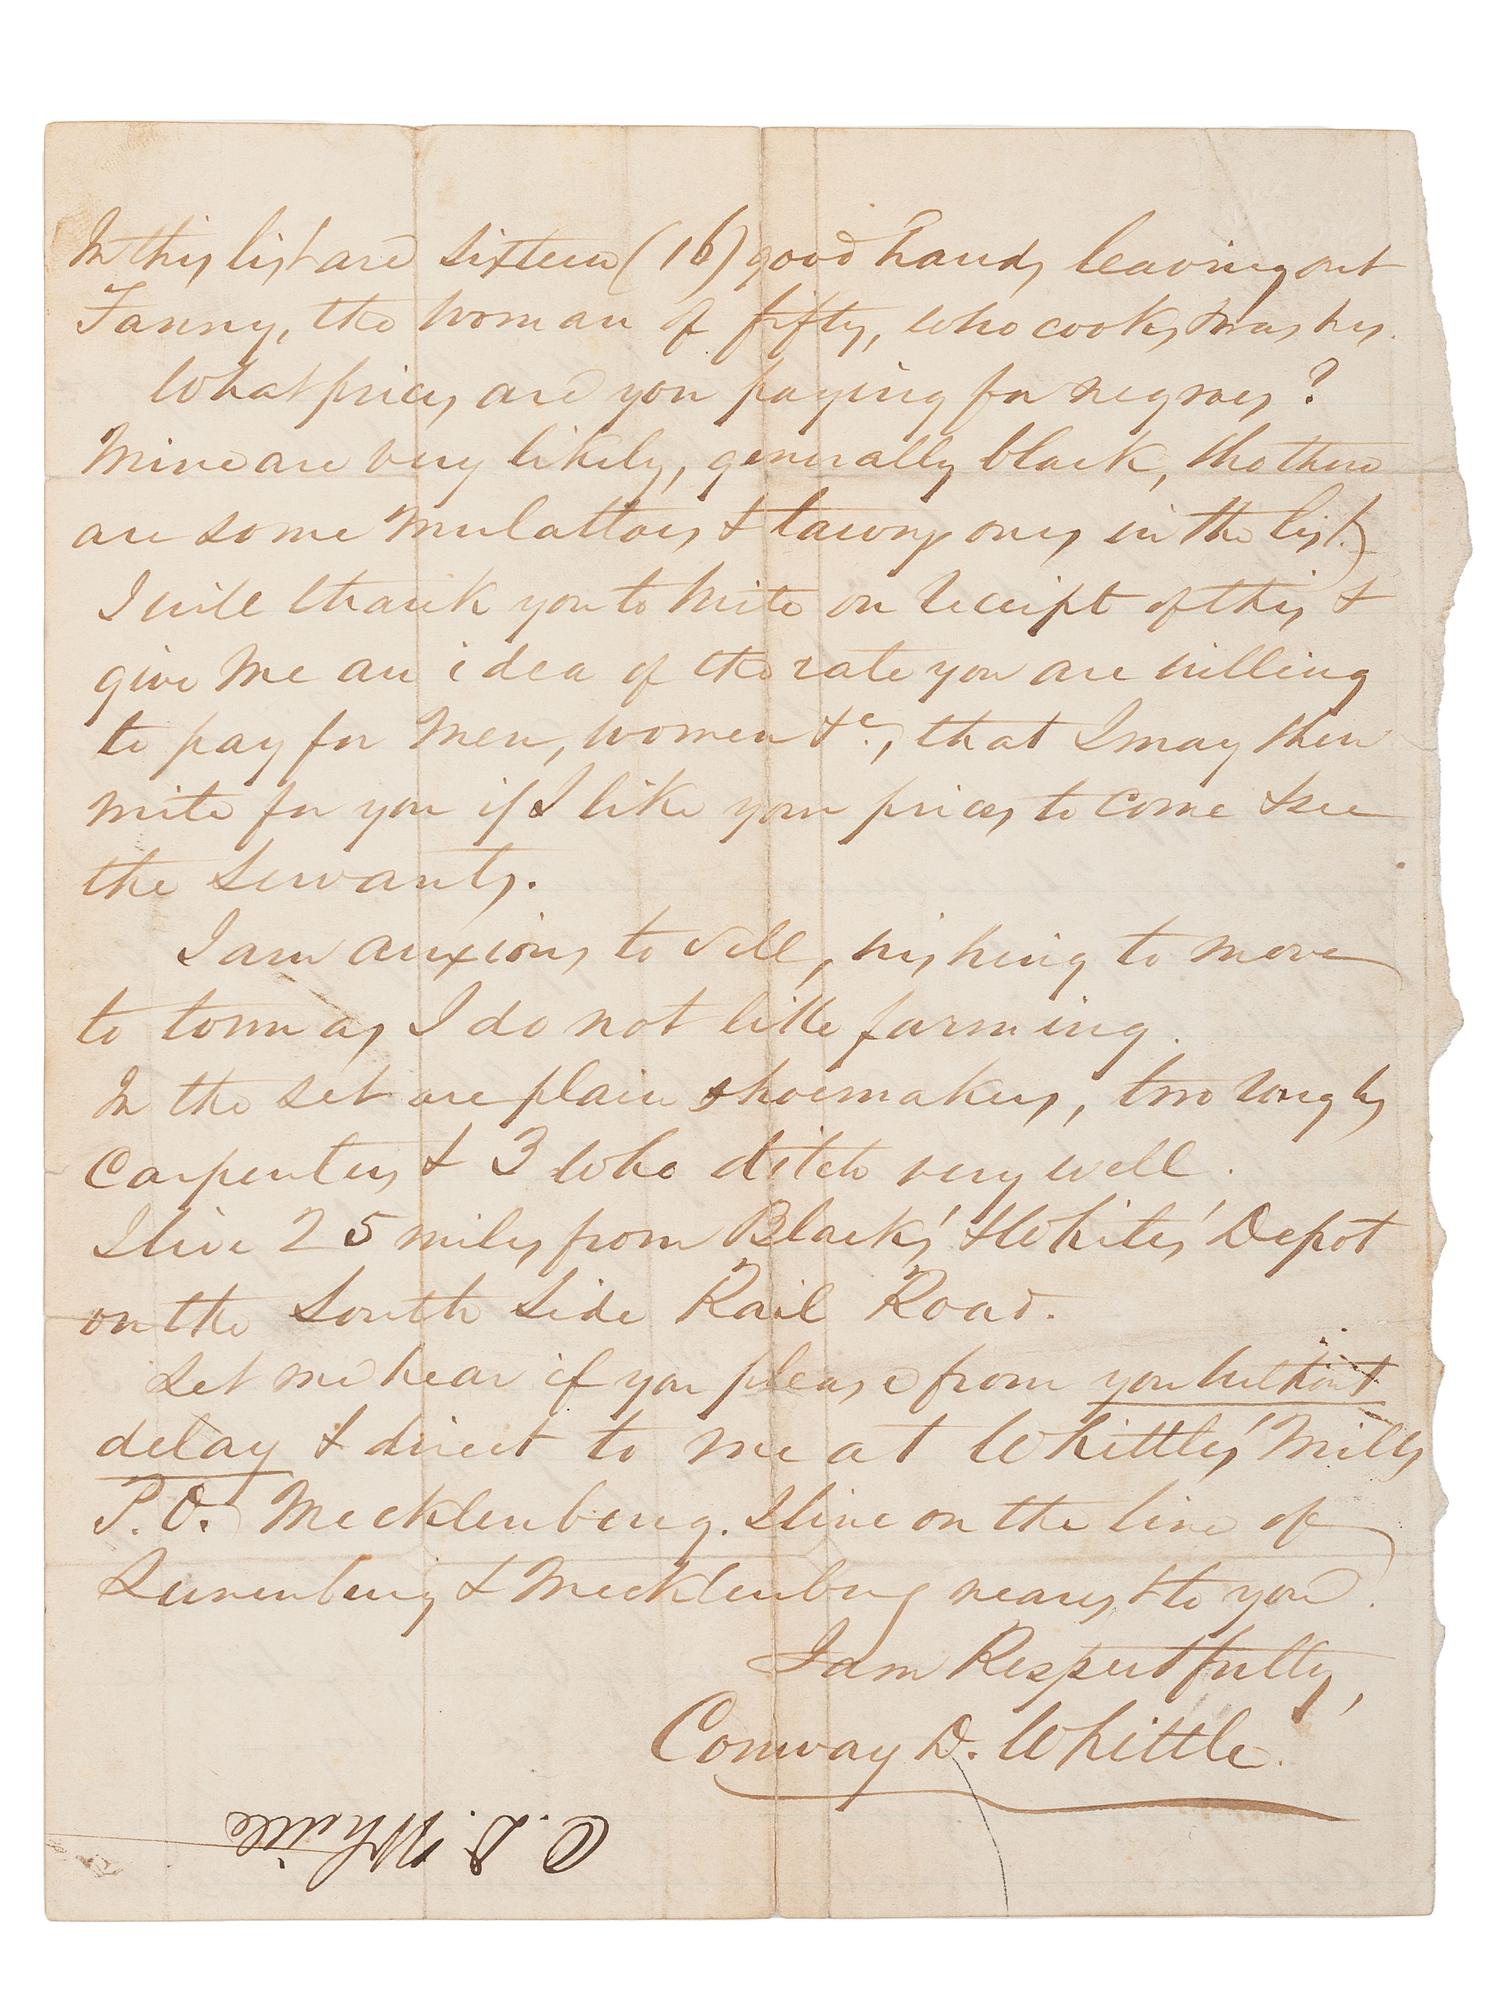 In this list are sixteen (16) good hands leaving out
Fanny, the woman of fifty, who cooks & washes.
What prices are you paying for negroes?
Mine are very likely, generally black, tho there
are some mulattoes & tawny ones in the list)
I will thank you to write on receipt of this &
give me an idea of the rate you are willing
to pay for men, women &c., that I may then
write for you if I like your prices to come & see
the servants.
I am anxious to sell, wishing to move
to town as I do not like farming.
In the set are plain shoemakers, two rough
Carpenters & 3 who ditch very well.
I live 25 miles from Blacks' & Whites' Depot
on the South Side Rail Road.
Let me hear if you please from you without
delay & direct to me at Whittles' Mills
P.O. Mecklenburg. I live on the line of
Lunenburg & Mecklenburg nearest to you.
I am Respectfully,
Conway D. Whittle.
C. D. Whittle